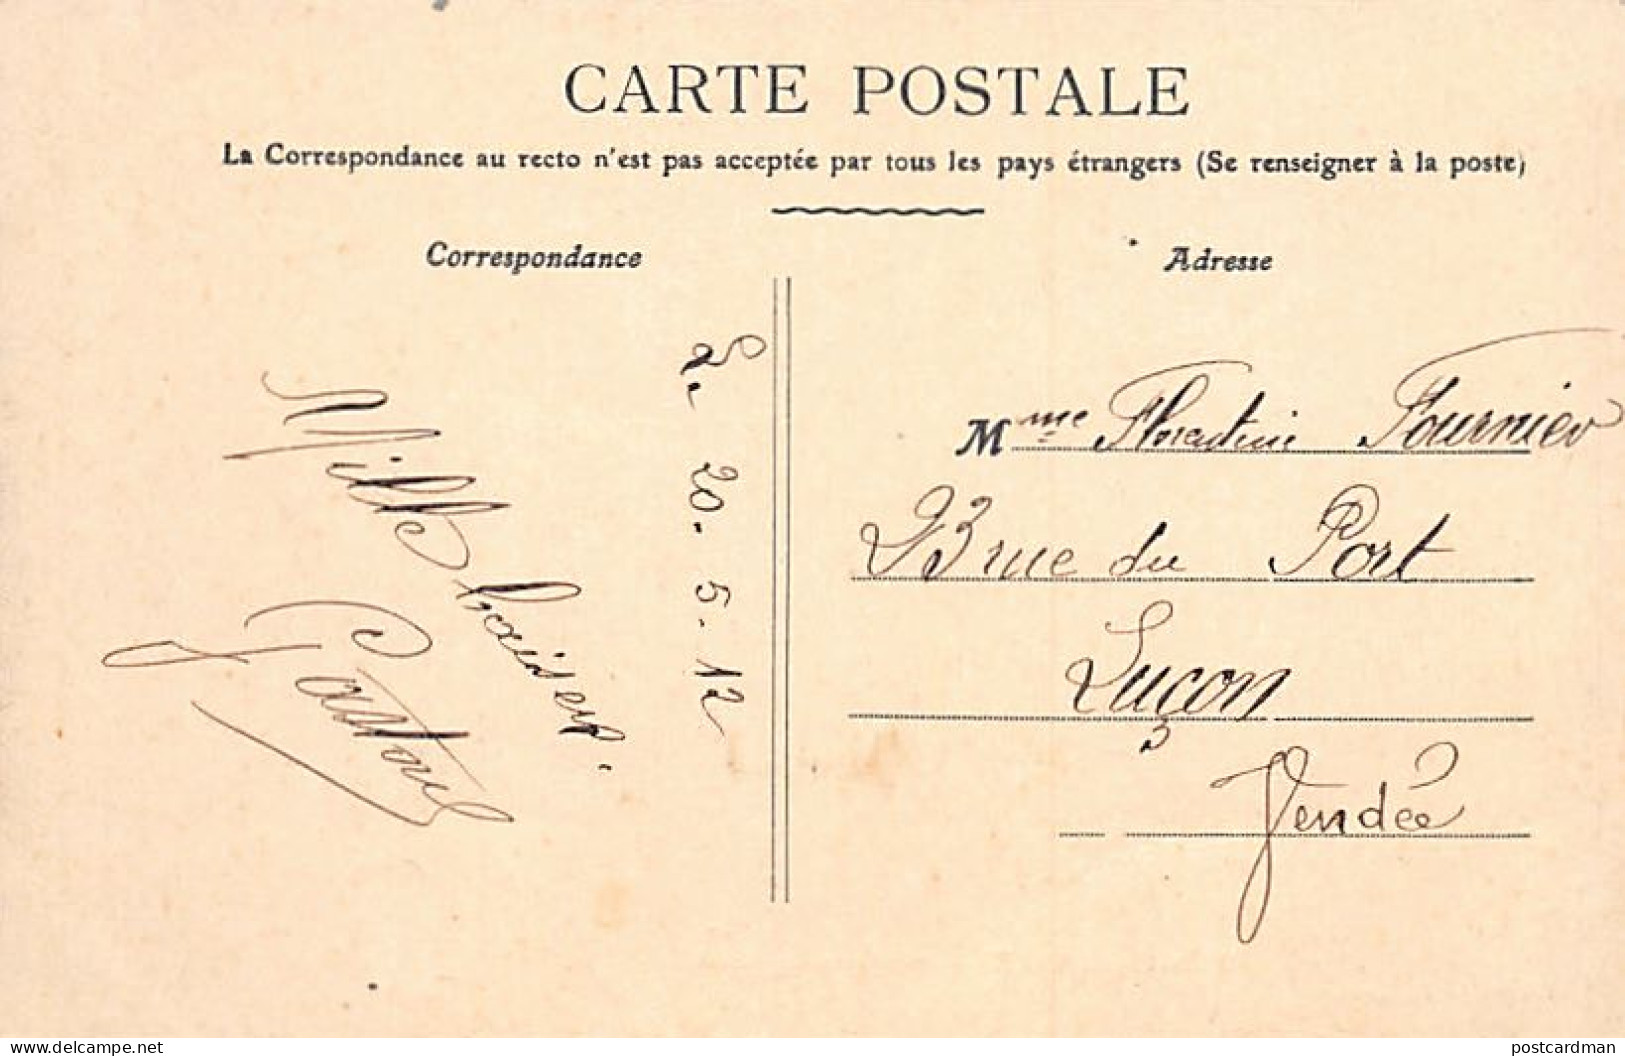 CARTE POSTALE
La Correspondance au recto n'est pas acceptée par tous les pays étrangers (Se renseigner à la poste)
Correspondance
20.5.12
Mille baisers.
Gaston
Adresse
Mme Florentine Fournier
23 rue du Port
Luçon
Vendée
www.delcampe.net
postcardman